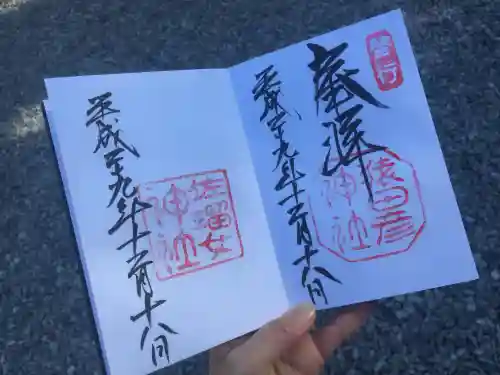 啓行
奉拝
猿田彦
神社
平成廿九年十二月十八日
佐瑠女
神社
平成廿九年十二月十八日